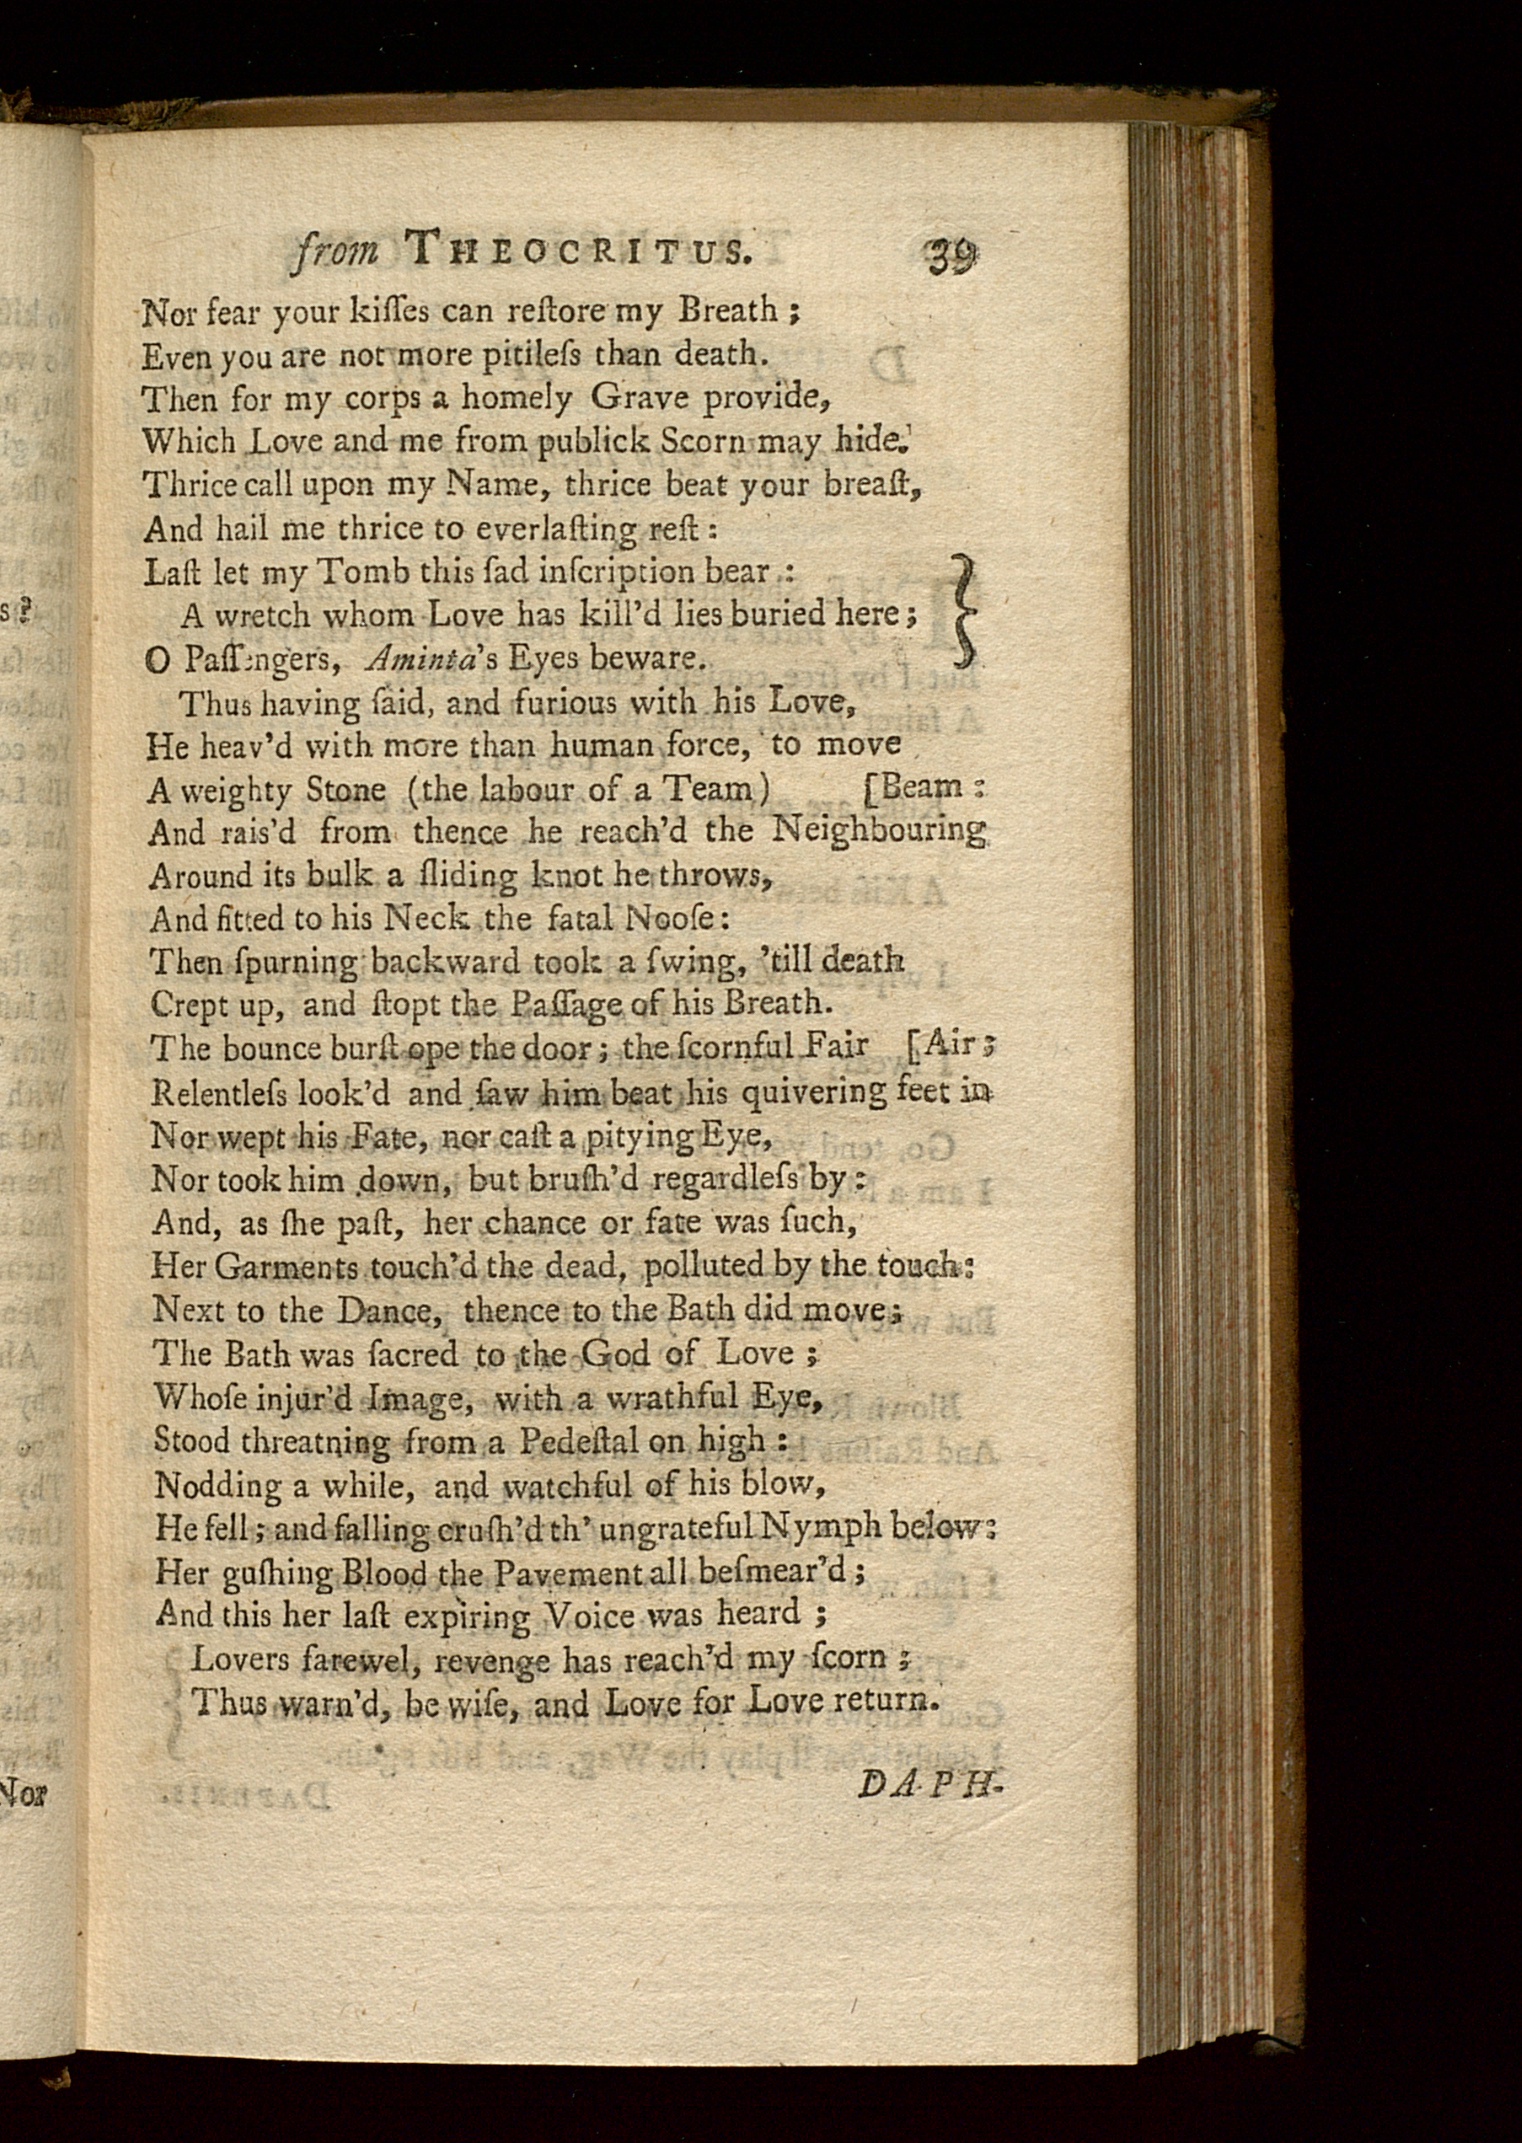 from THEOCRITUS. 39
Nor fear your kiſſes can reſtore my Breath ;
Even you are not more pitileſs than death.
Then for my corps a homely Grave provide,
Which Love and me from publick Scorn may hide.
Thrice call upon my Name, thrice beat your breaſt,
And hail me thrice to everlaſting reſt :
Laſt let my Tomb this ſad inſcription bear :
A wretch whom Love has kill'd lies buried here ;
O Paſſengers, Aminta's Eyes beware. }
Thus having ſaid, and furious with his Love,
He heav'd with more than human force, to move
A weighty Stone (the labour of a Team) [Beam :
And rais'd from thence he reach'd the Neighbouring
Around its bulk a ſliding knot he throws,
And fitted to his Neck the fatal Nooſe :
Then ſpurning backward took a ſwing, 'till death
Crept up, and ſtopt the Paſſage of his Breath.
The bounce burſt ope the door ; the ſcornful Fair [Air ;
Relentleſs look'd and ſaw him beat his quivering feet in
Nor wept his Fate, nor caſt a pitying Eye,
Nor took him down, but bruſh'd regardleſs by :
And, as ſhe paſt, her chance or fate was ſuch,
Her Garments touch'd the dead, polluted by the touch :
Next to the Dance, thence to the Bath did move ;
The Bath was ſacred to the God of Love ;
Whoſe injur'd Image, with a wrathful Eye,
Stood threatning from a Pedeſtal on high :
Nodding a while, and watchful of his blow,
He fell ; and falling cruſh'd th' ungrateful Nymph below :
Her guſhing Blood the Pavement all beſmear'd ;
And this her laſt expiring Voice was heard ;
Lovers farewel, revenge has reach'd my ſcorn ;
Thus warn'd, be wiſe, and Love for Love return.
DAPH-
s ?
Nor